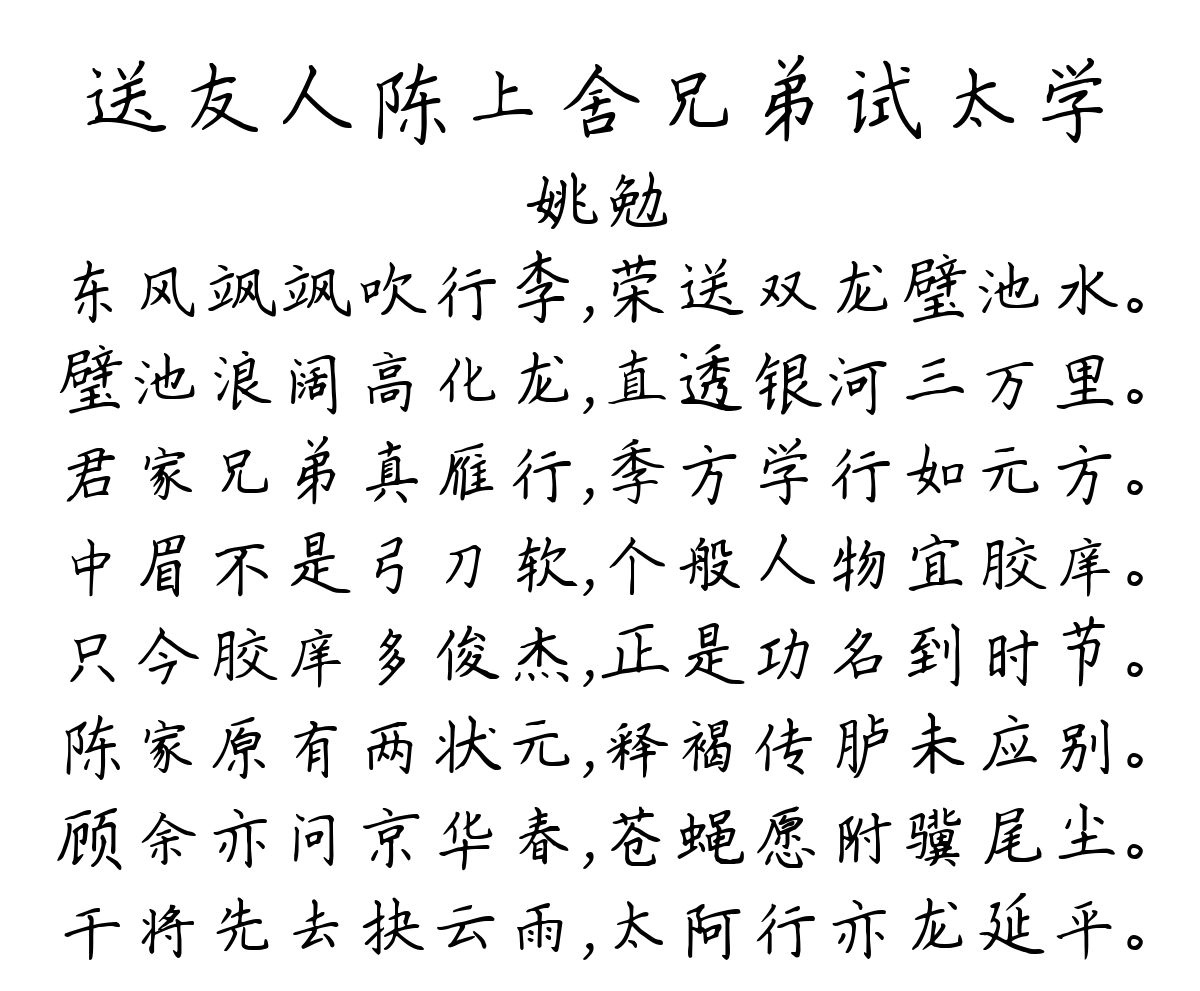 送友人陈上舍兄弟试太学
姚勉
东风飒飒吹行李,荣送双龙璧池水。
璧池浪阔高化龙,直透银河三万里。
君家兄弟真雁行,季方学行如元方。
中眉不是弓刀软,个般人物宜胶庠。
只今胶庠多俊杰,正是功名到时节。
陈家原有两状元,释褐传胪未应别。
顾余亦问京华春,苍蝇愿附骥尾尘。
干将先去抉云雨,太阿行亦龙延平。